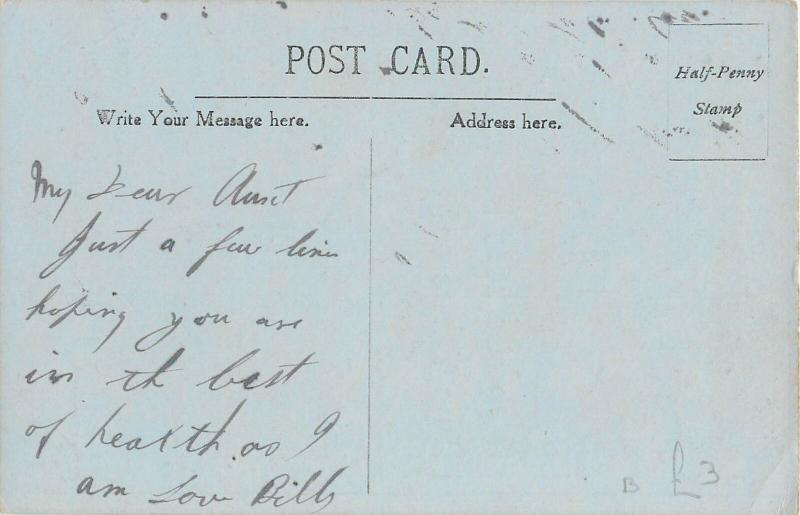 POST CARD.
Half-Penny
Stamp
Write Your Message here.
Address here.
My Dear Aunt
Just a few lines
hoping you are
in th best
of health as I
am Love Billy
B £3